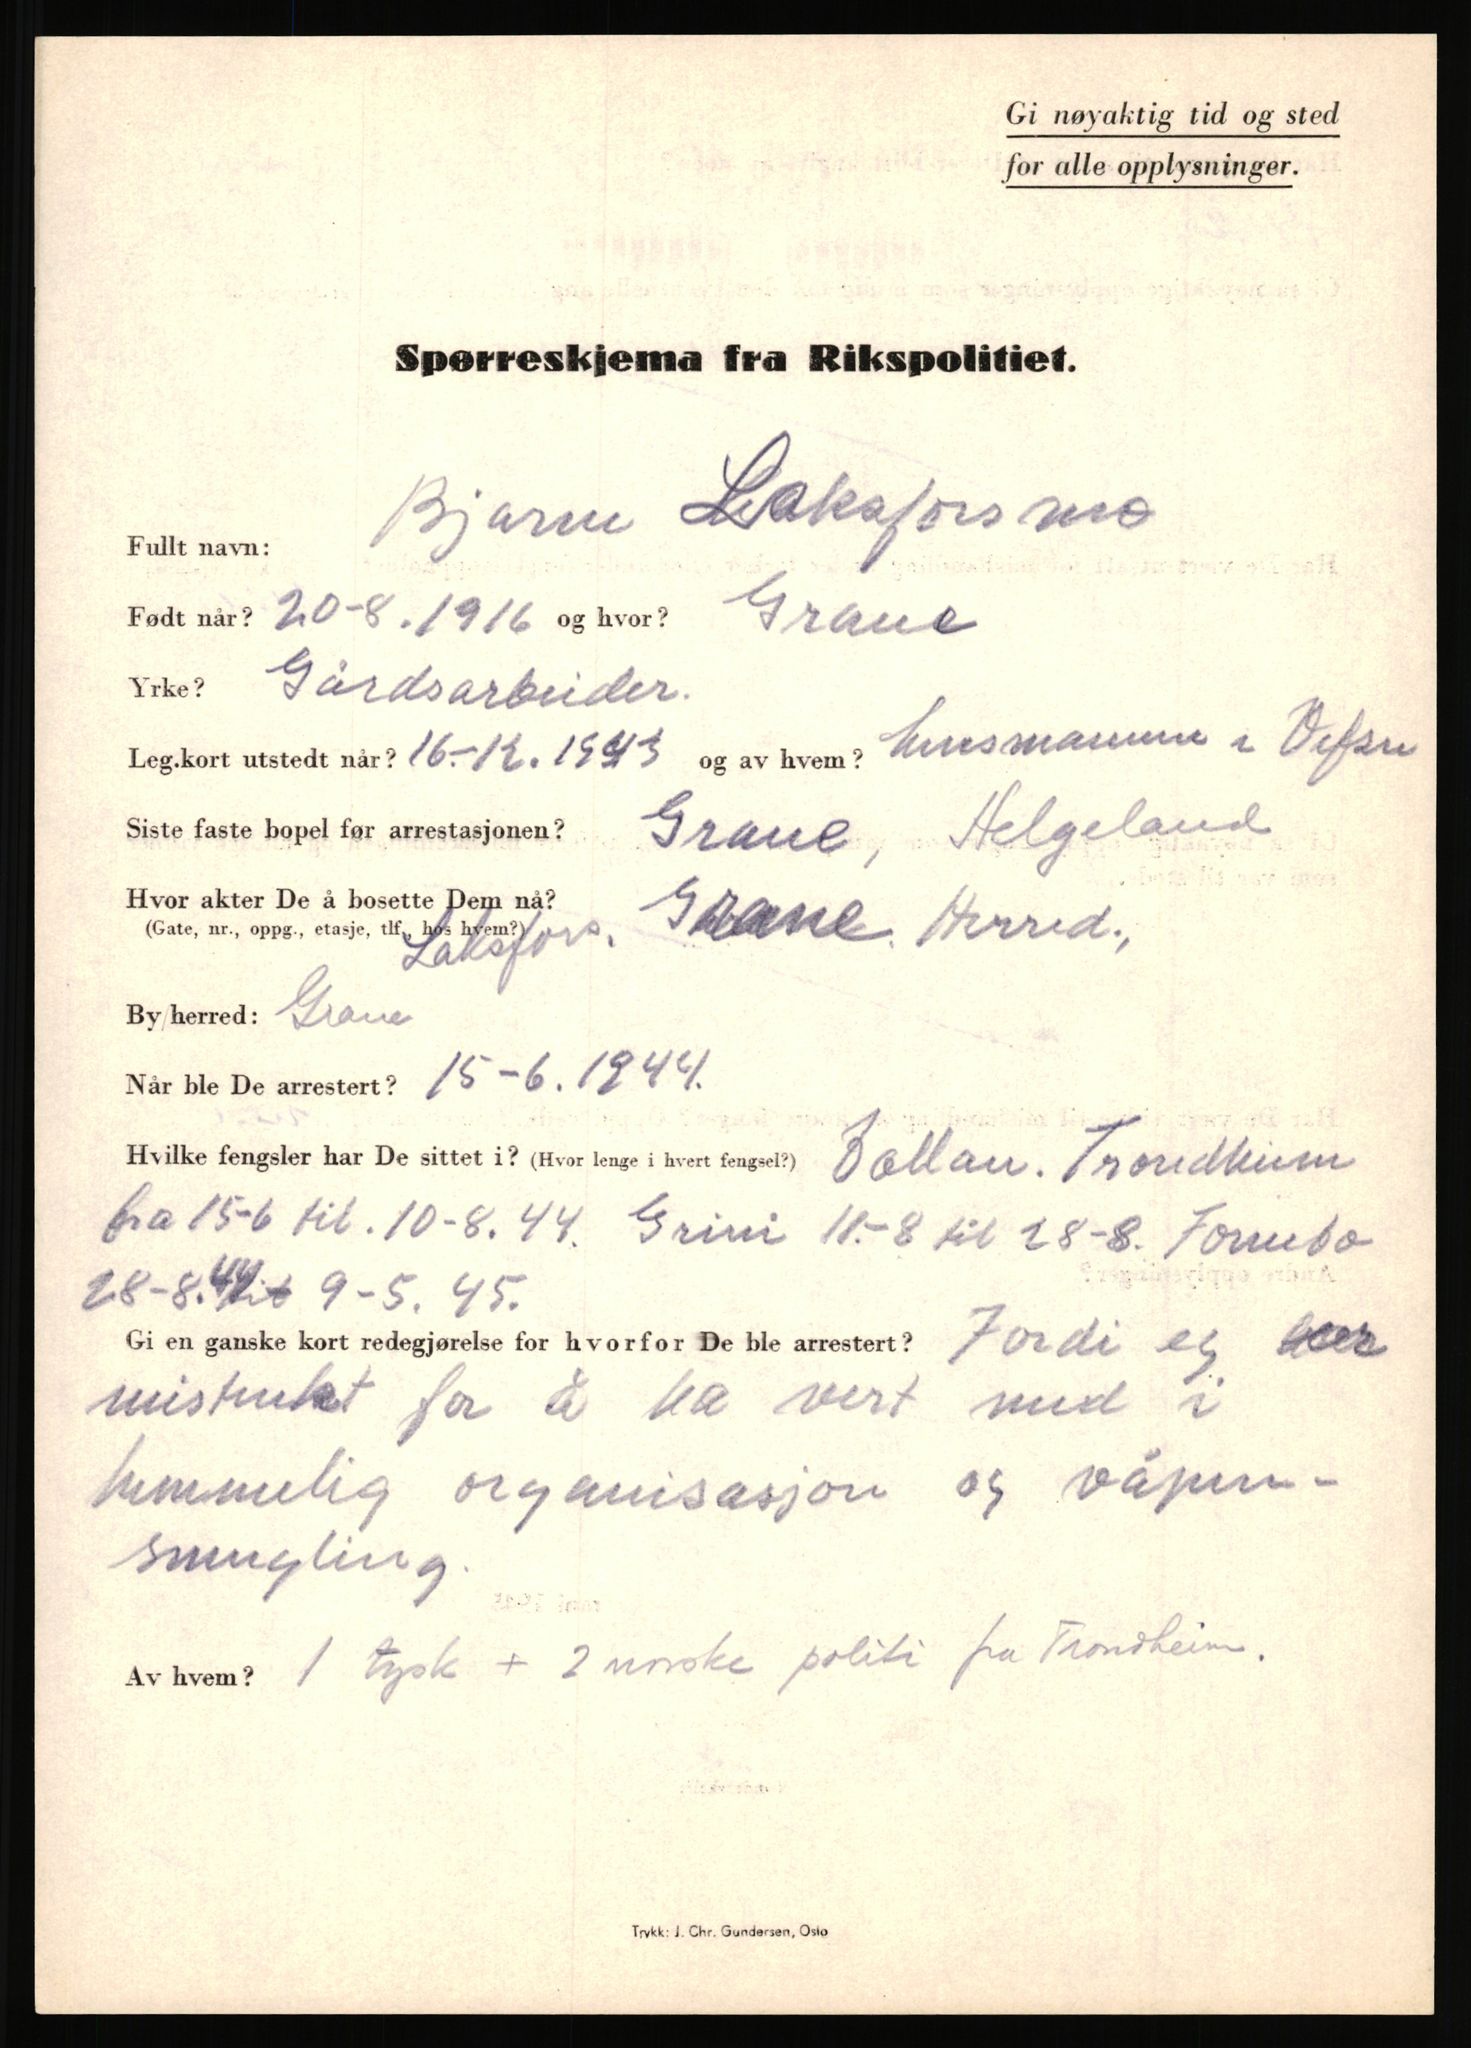 Gi nøyaktig tid og sted
for alle opplysninger.
Spørreskjema fra Rikspolitiet.
Fullt navn: Bjarne Laksforsmo
Født når? 20-8.1916 og hvor? Grane
Yrke? Gårdsarbeider.
Leg.kort utstedt når? 16-12.1943 og av hvem? lensmannen i Vefsn
Siste faste bopel før arrestasjonen? Grane, Helgeland
Hvor akter De å bosette Dem nå?
(Gate, nr., oppg., etasje, tlf., hos hvem?) Laksfors. Grane. Herred.,
By/herred: Grane
Når ble De arrestert? 15-6.1944.
Hvilke fengsler har De sittet i? (Hvor lenge i hvert fengsel?) Vollan. Trondheim
fra 15-6 til. 10-8.44. Grini 11.-8 til 28-8. Fornebo
28-8.44 til 9-5.45.
Gi en ganske kort redegjørelse for hvorfor De ble arrestert? Fordi eg var
mistenkt for å ha vert med i
hemmelig organisasjon og våpen-
smugling.
Av hvem? 1 tysk + 2 norske politi fra Trondheim.
Trykk: J. Chr. Gundersen, Oslo